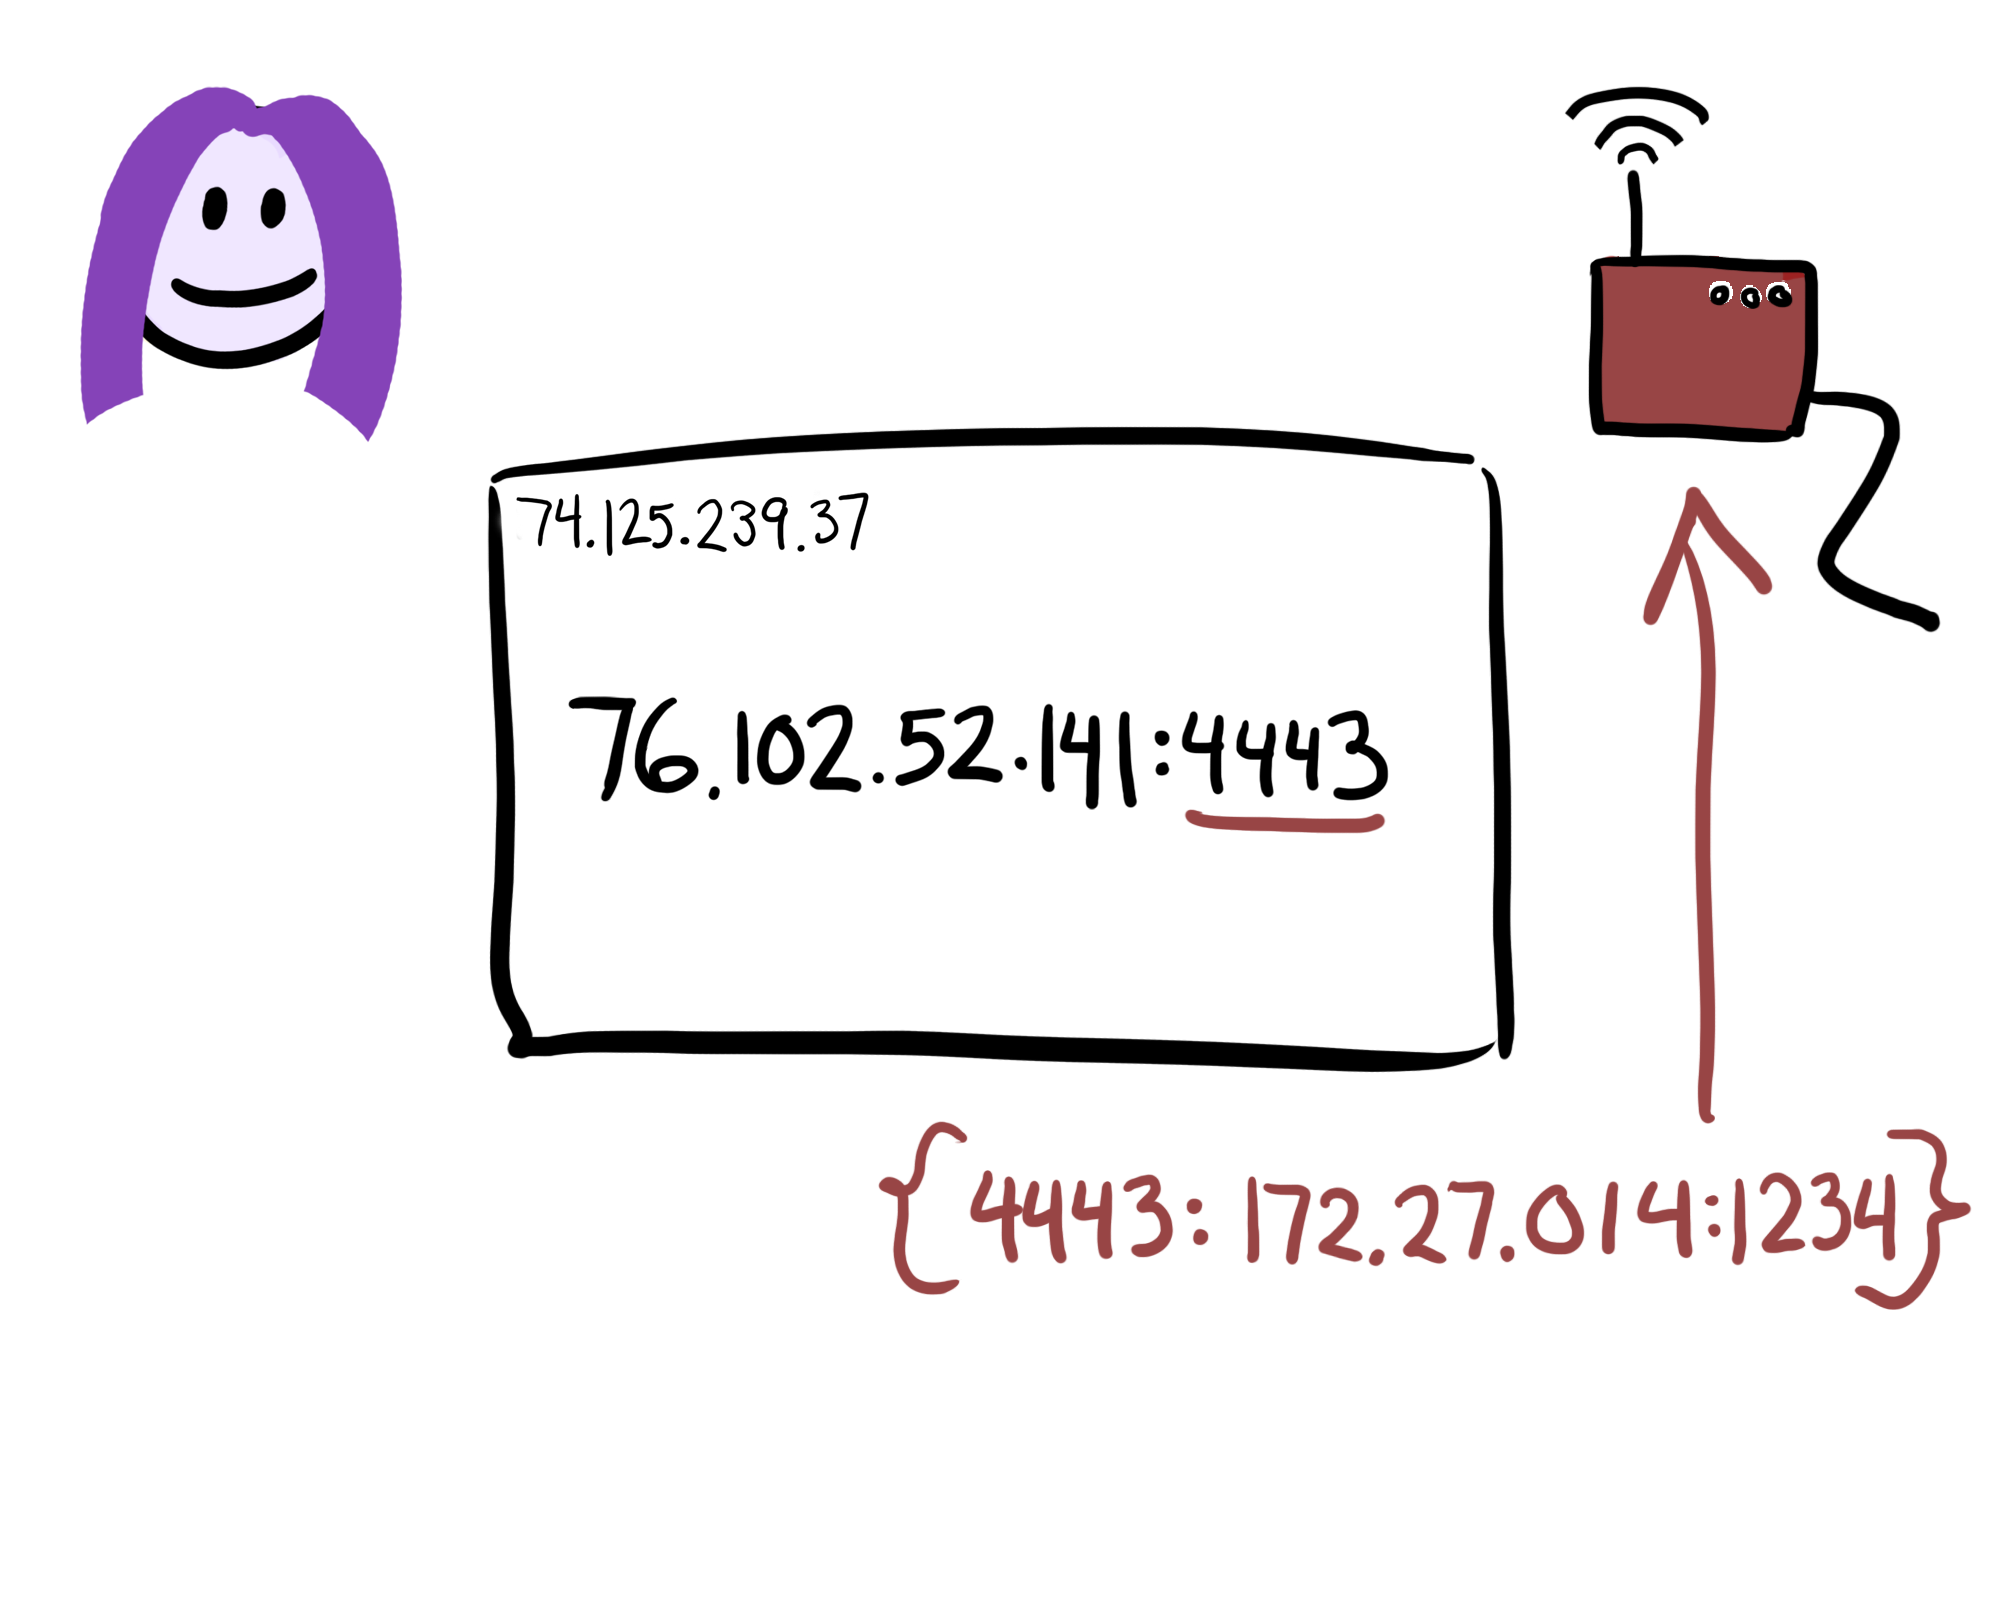 74.125.239.37
76.102.52.141:4443
{4443:172.27.014:1234}